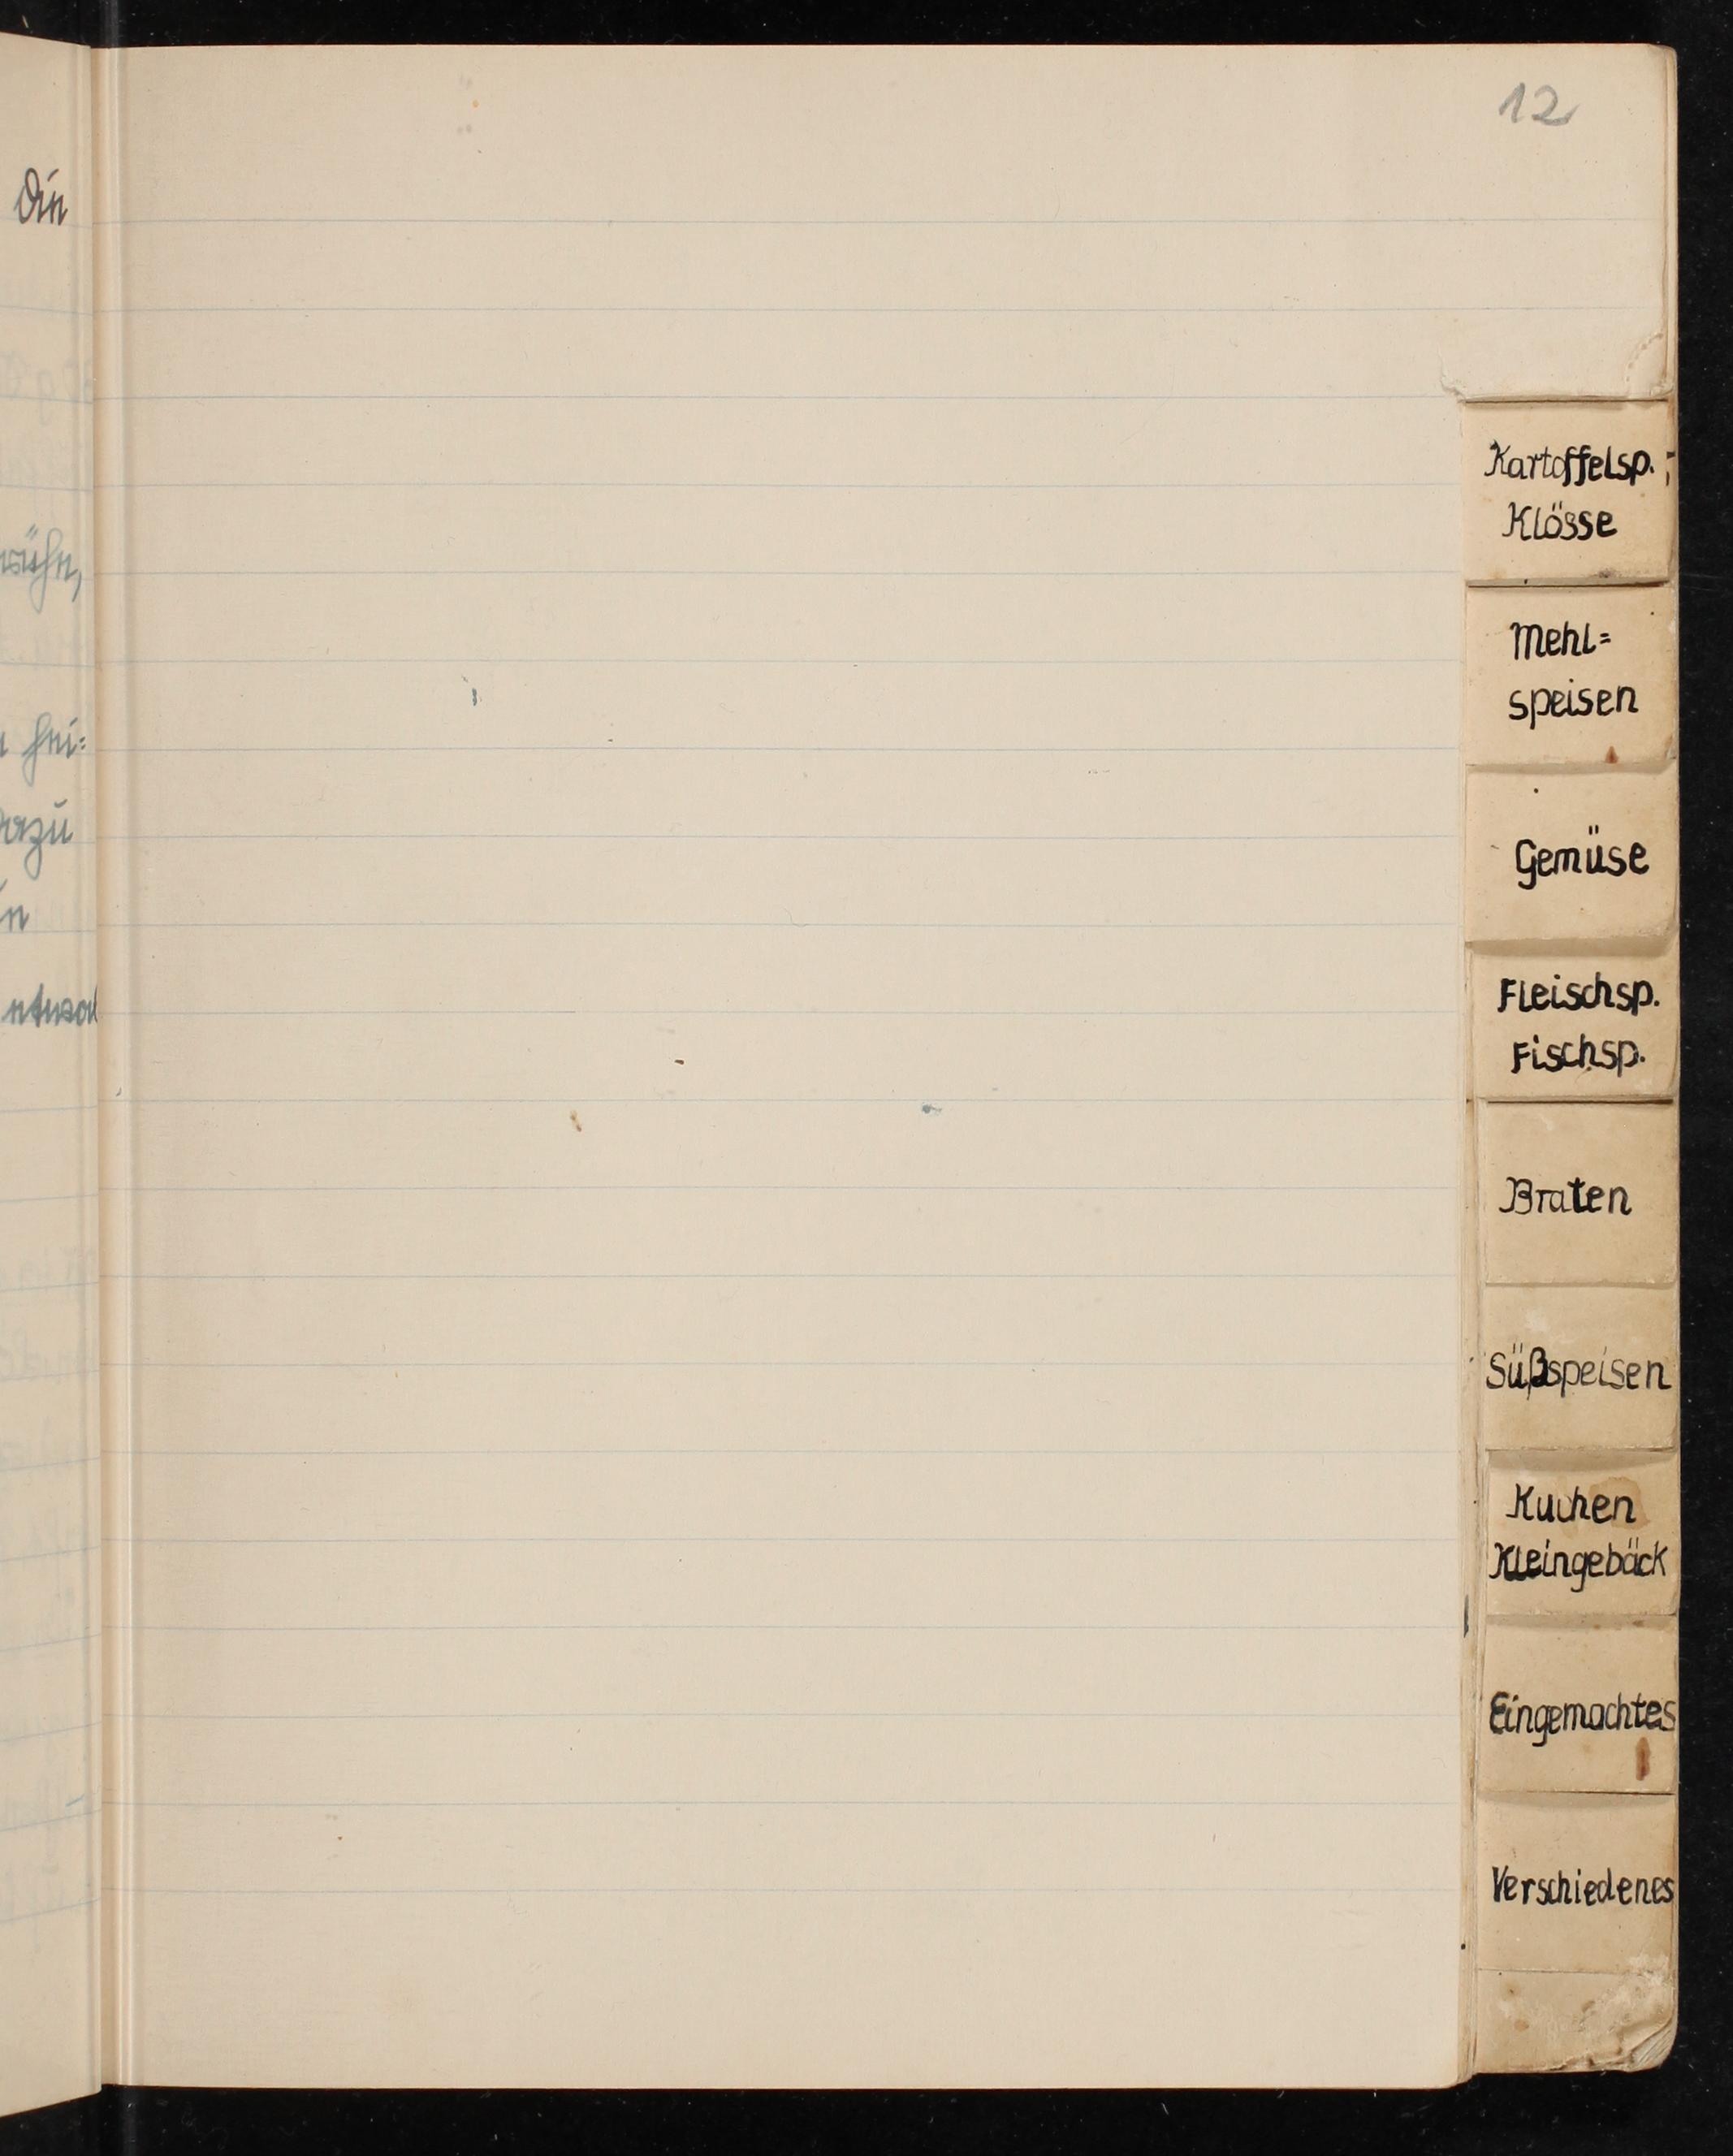 12
Die
hei=
dazu
Kartoffelsp.;
Klösse
Mehl=
speisen
Gemüse
Fleischsp.
Fischsp.
Braten
Süßspeisen
Kuchen
Kleingebäck
Eingemachtes
Verschiedenes